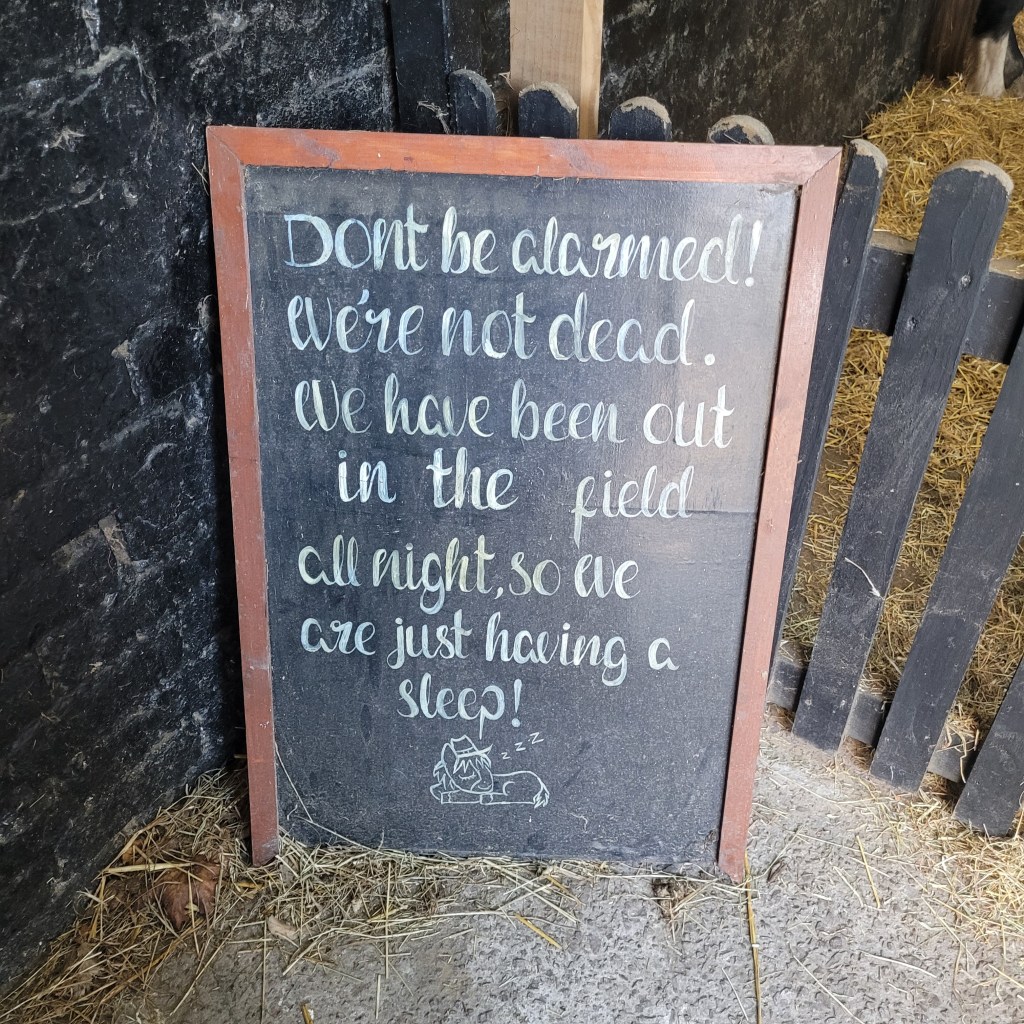 Dont be alarmed!
We're not dead.
We have been out
in the field
all night, so we
are just having a
sleep!
z z z